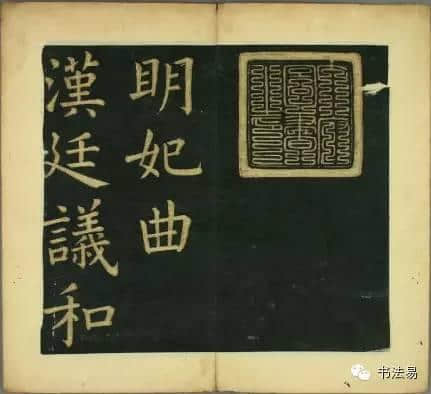 明妃曲
漢廷議和
书法易